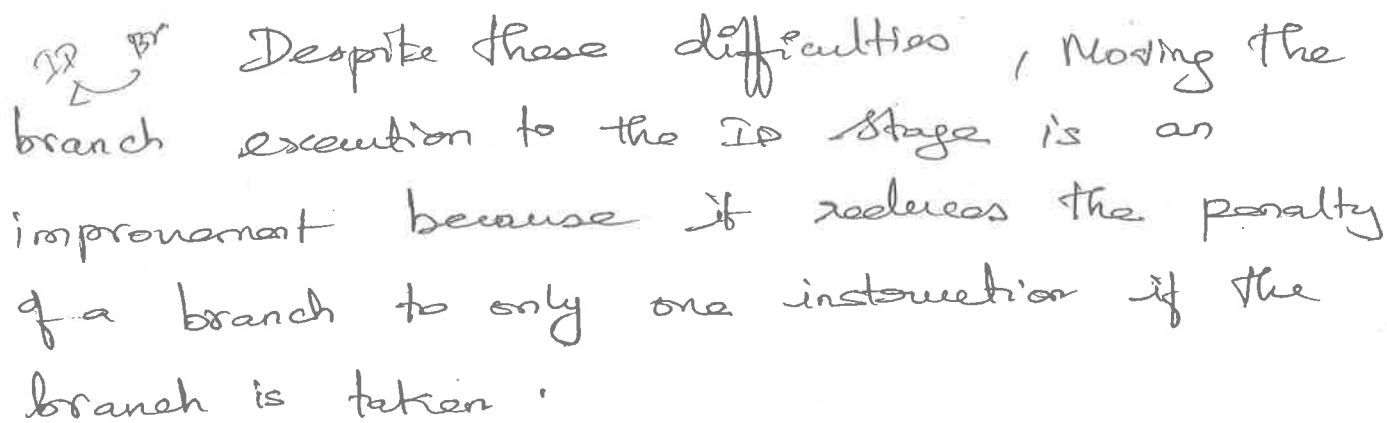 ID Br Despite these difficulties, Moving the
branch execution to the ID stage is an
improvement because it reduces the penalty
of a branch to only one instruction if the
branch is taken.